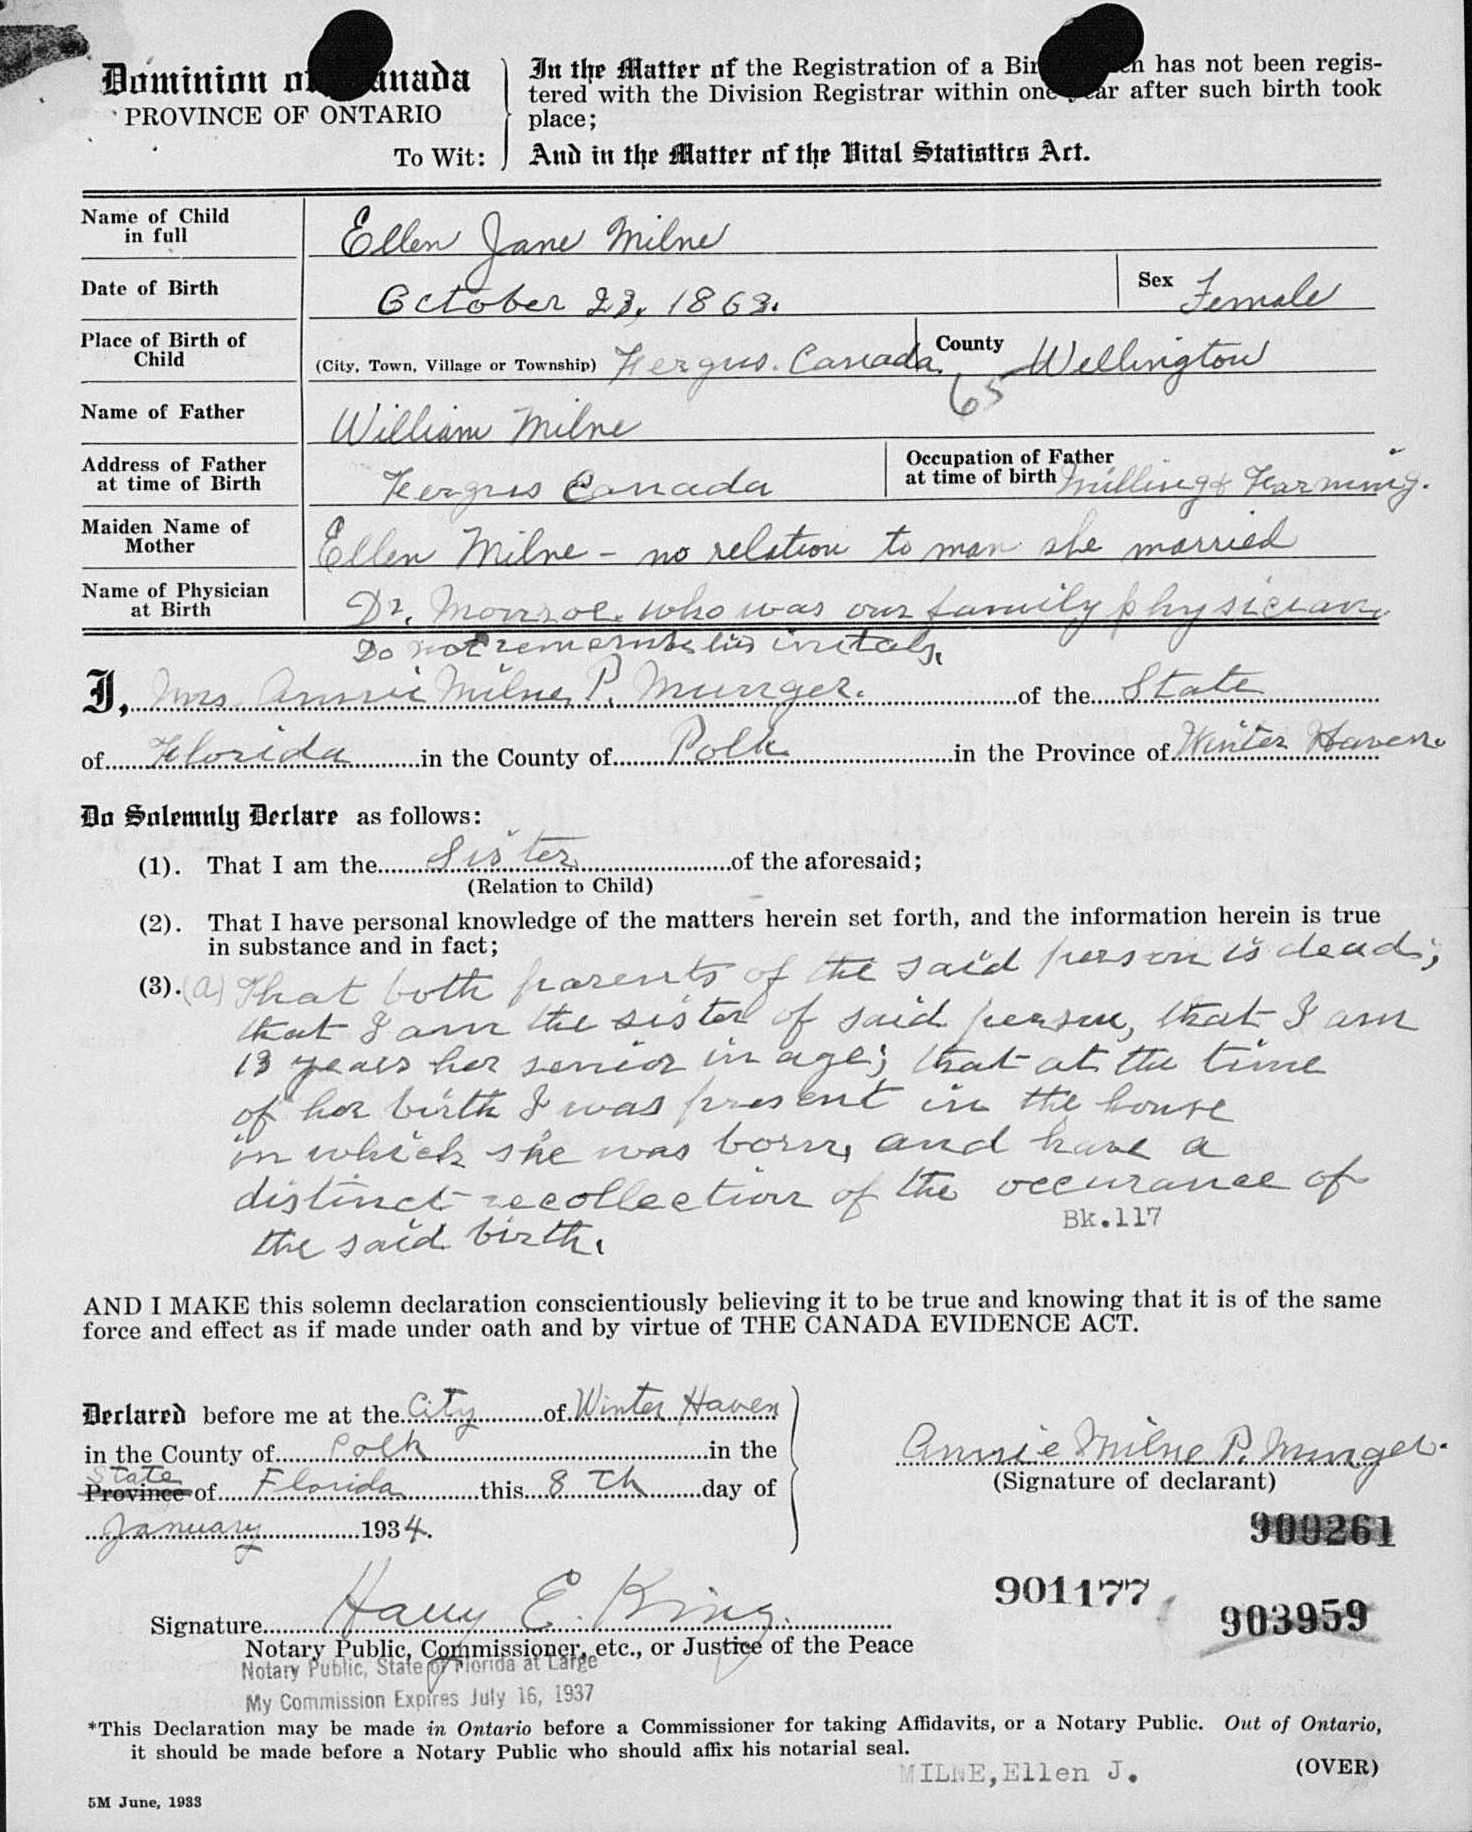 Dominion of Canada
PROVINCE OF ONTARIO
To Wit:
In the Matter of the Registration of a Bir ch has not been regis-
tered with the Division Registrar within one year after such birth took
place;
And in the Matter of the Vital Statistics Act.
Name of Child in full Ellen Jane Milne
Date of Birth October 23, 1863. Sex Female
Place of Birth of Child (City, Town, Village or Township) Fergus. Canada. County Wellington
65
Name of Father William Milne
Address of Father at time of Birth Fergus Canada Occupation of Father at time of birth Milling & Farming.
Maiden Name of Mother Ellen Milne - no relation to man she married
Name of Physician at Birth Dr. Monroe. who was our family physician.
Do not remember his initals.
I, Mrs. Annie Milne P. Munger. of the State
of Florida in the County of Polk in the Province of Winter Haven.
Do Solemnly Declare as follows:
(1). That I am the Sister of the aforesaid;
(Relation to Child)
(2). That I have personal knowledge of the matters herein set forth, and the information herein is true
in substance and in fact;
(3). (a) That both parents of the said person is dead;
that I am the sister of said person, that I am
13 years her senior in age; that at the time
of her birth I was present in the house
in which she was born, and have a
distinct recollection of the occurance of
Bk.117
the said birth.
AND I MAKE this solemn declaration conscientiously believing it to be true and knowing that it is of the same
force and effect as if made under oath and by virtue of THE CANADA EVIDENCE ACT.
Declared before me at the City of Winter Haven
in the County of Polk in the
State
Province of Florida this 8 Th day of
January 1934.
Annie Milne P. Munger.
(Signature of declarant)
900261
901177
903959
Signature Harry E. King.
Notary Public, Commissioner, etc., or Justice of the Peace
Notary Public, State of Florida at Large
My Commission Expires July 16, 1937
*This Declaration may be made in Ontario before a Commissioner for taking Affidavits, or a Notary Public. Out of Ontario,
it should be made before a Notary Public who should affix his notarial seal.
MILNE, Ellen J.
(OVER)
5M June, 1933